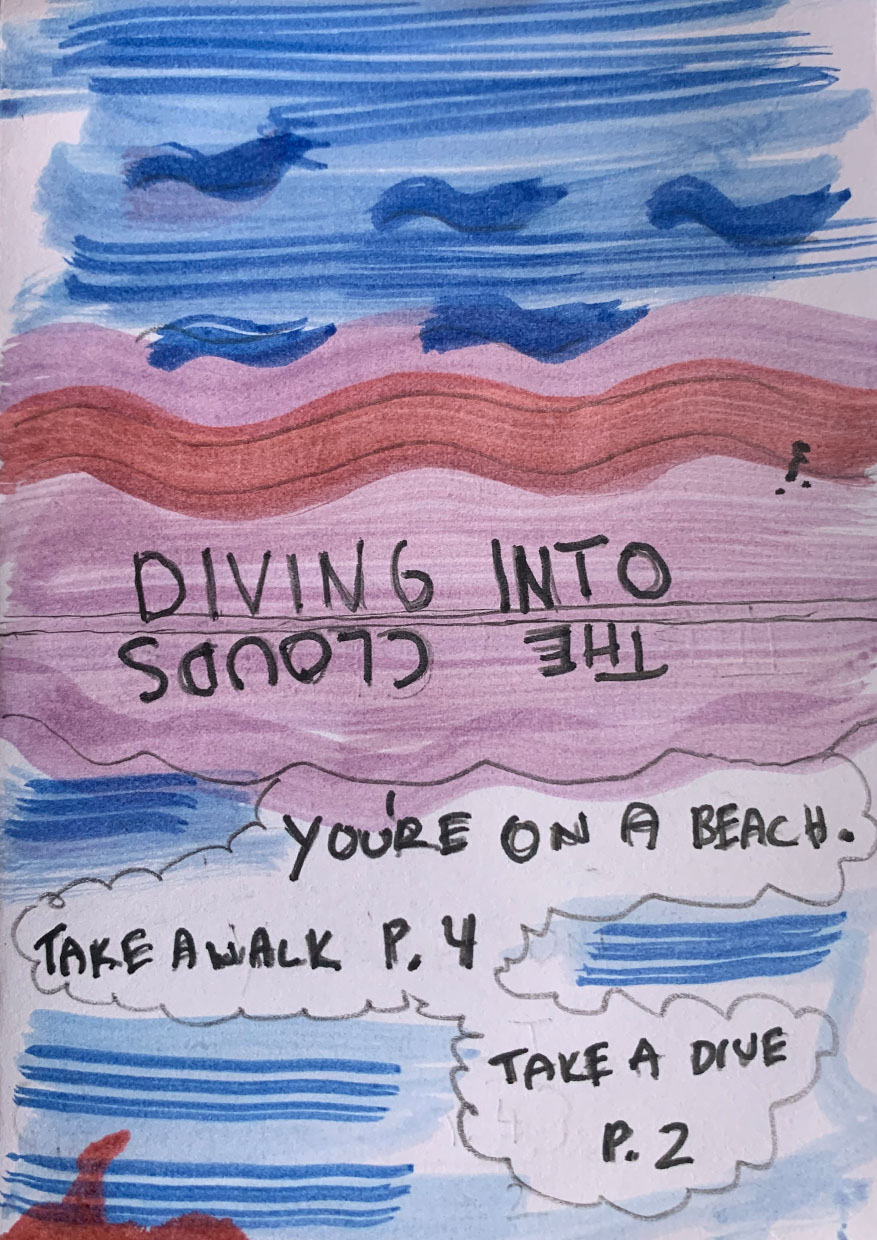 DIVING INTO
THE CLOUDS
YOU'RE ON A BEACH.
TAKE A WALK P. 4
TAKE A DIVE
P. 2